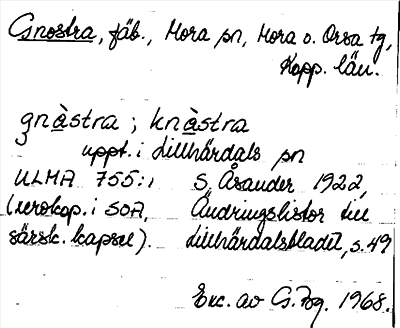 Gnostra, fäb., Mora sn, Mora o. Orsa tg,
Kopp. län.
gnàstra ; knàstra
uppt. i Lillhärdals sn
ULMA 755:1 S. Åsander 1922,
(xerokop. i SOA, Ändringslistor till
särsk. kapsel). Lillhärdalsbladet, s. 49
Exc. av G. Fog. 1968.